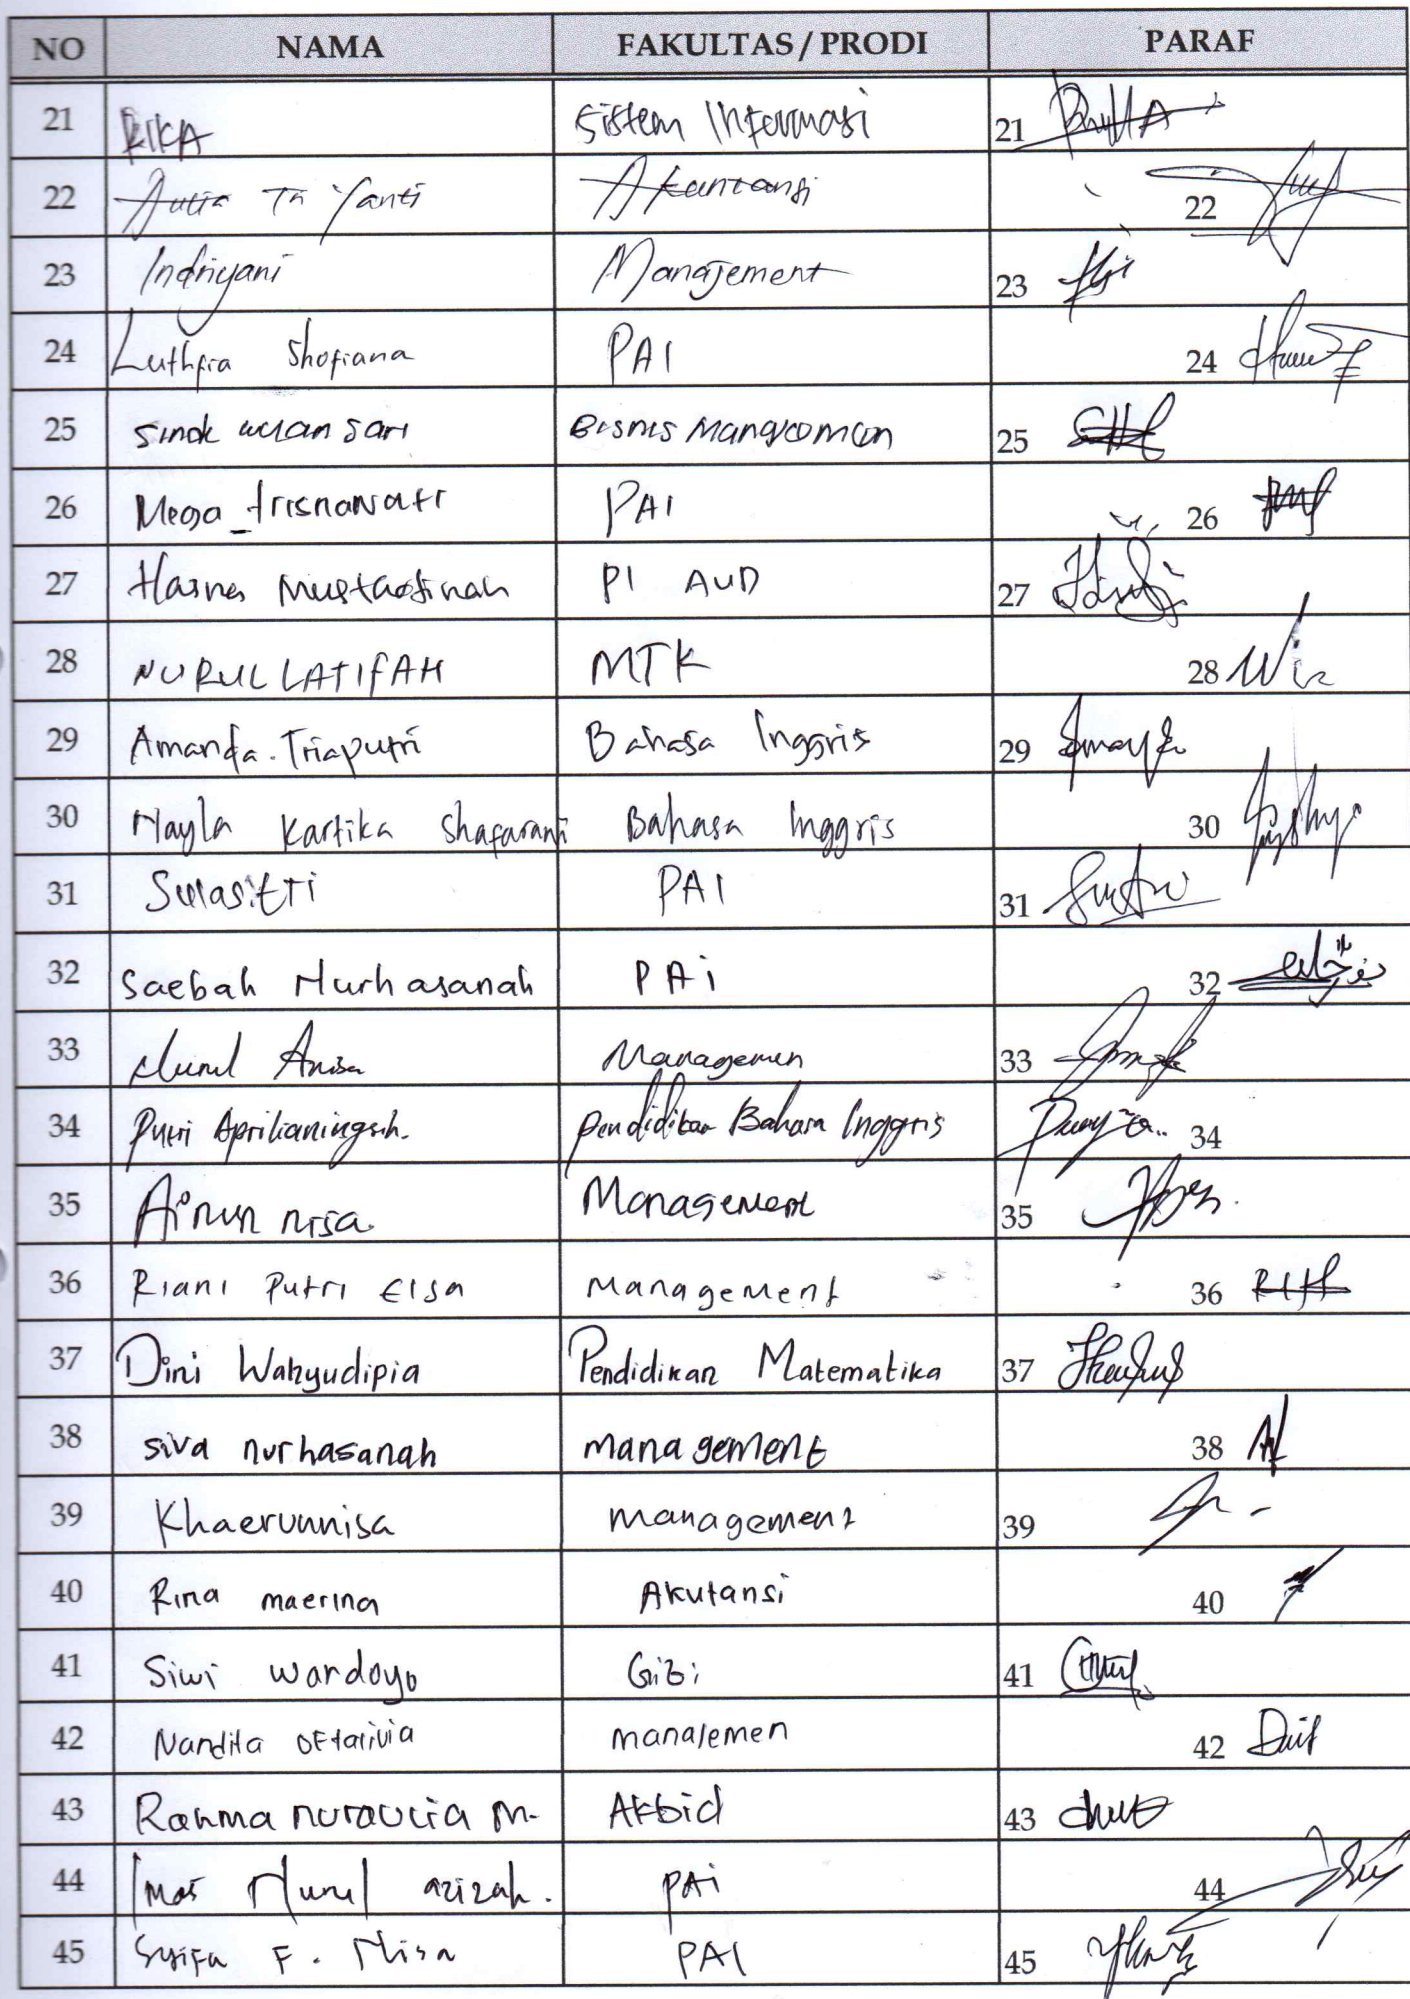 NO NAMA FAKULTAS / PRODI PARAF
21 RIKA Sistem Informasi 21
22 Tri Yanti Akuntansi 22
23 Indriyani Manajement 23
24 Luthfia Shofiana PAI 24
25 Sinok wulan sari Bisnis 25
26 Mega trisnawati PAI 26
27 Hasna PI AUD 27
28 NURUL LATIFAH MTK 28
29 Amanda. Triaputri Bahasa Inggris 29
30 Nayla Kartika Shafarani Bahasa Inggris 30
31 PAI 31
32 Saebah Nurhasanah PAi 32
33 Nurul Anisa Managemen 33
34 Putri Aprilianingsih. Pendidikan Bahasa Inggris 34
35 Ainun nisa. Management 35
36 Riani Putri Elsa Management 36
37 Dini Wahyudipia Pendidikan Matematika 37
38 siva nurhasanah management 38
39 Khaerunnisa management 39
40 Rina maerina Akutansi 40
41 Siwi wardoyo Gizi 41
42 Nandita oktaviia manajemen 42
43 Rahma nuraulia M. Akbid 43
44 Imas Nurul azizah. PAi 44
45 Syifa F. Nisa PAI 45